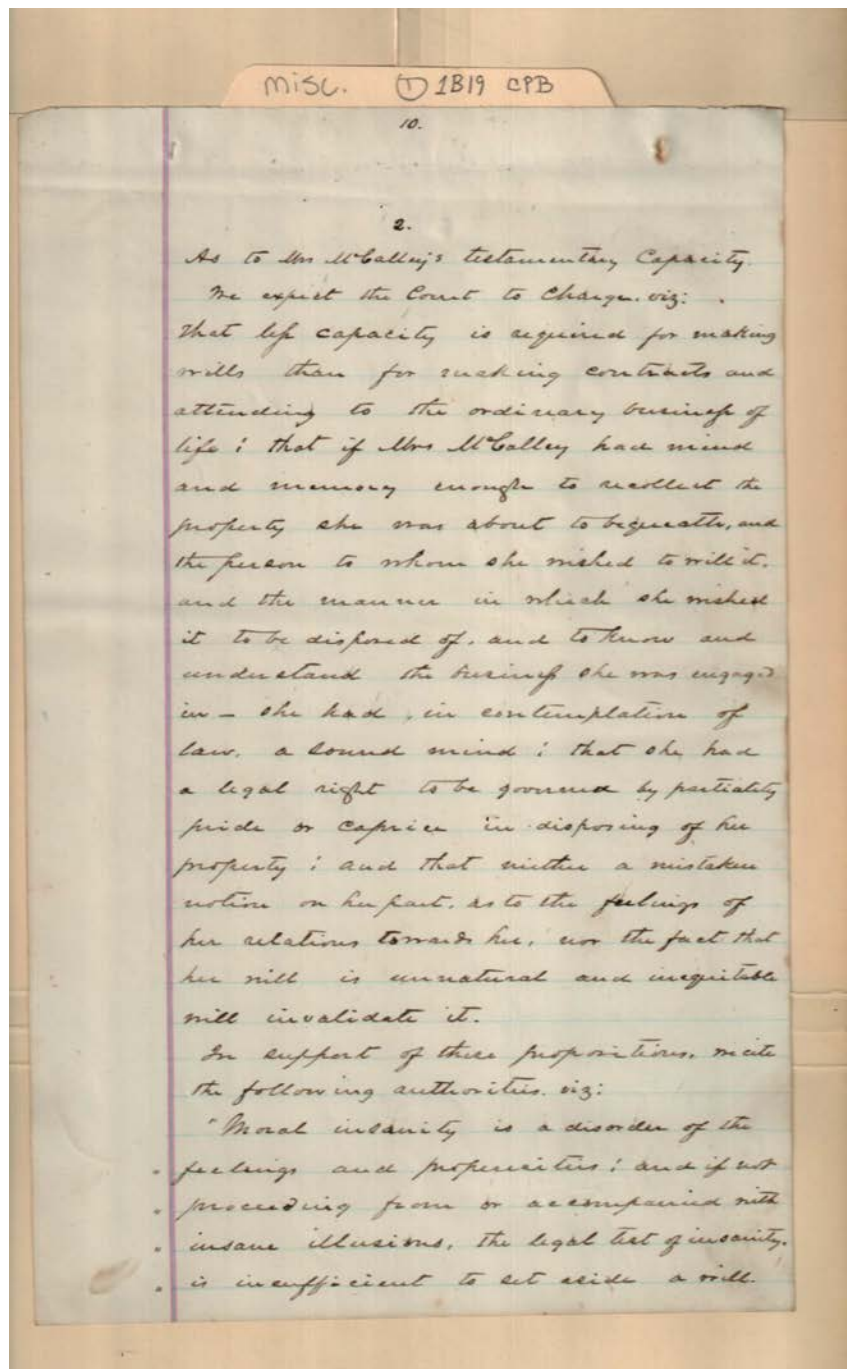 misc. ① 1B19 CPB
10.
2.
As to Mrs McCalley's testamentary Capacity.
We expect the Court to Charge. viz:
that less capacity is required for making
wills than for making contracts and
attending to the ordinary business of
life; that if Mrs McCalley had mind
and memory enough to recollect the
property she was about to bequeath, and
the person to whom she wished to will it,
and the manner in which she wished
it to be disposed of, and to know and
understand the business she was engaged
in — she had, in contemplation of
law, a sound mind; that she had
a legal right to be governed by partiality
pride or caprice in disposing of her
property; and that neither a mistaken
notion on her part, as to the feelings of
her relations towards her, nor the fact that
her will is unnatural and inequitable
will invalidate it.
In support of these propositions, we cite
the following authorities. viz:
"Moral insanity is a disorder of the
feelings and propensities; and if not
proceeding from or accompanied with
insane illusions, the legal test of insanity,
is insufficient to set aside a will.